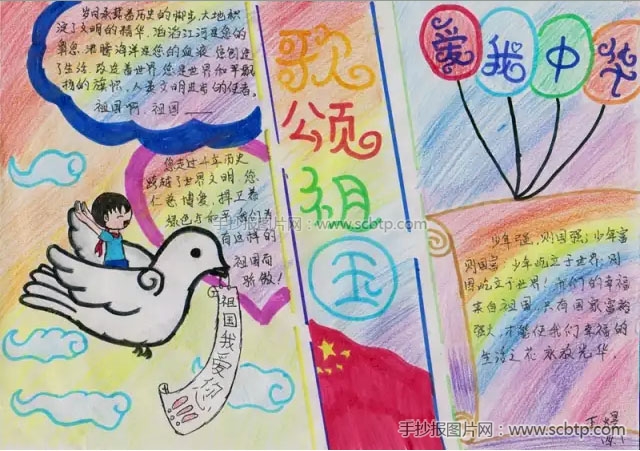 岁月承载着历史的脚步,大地积
淀了文明的精华,滔滔江河是您的
气息,沸腾海洋是您的血液,您创造
了生活,改造着世界,您是世界和平
的旗帜,人类文明进步的使者。
祖国啊,祖国
您走过了千年历史
跨越了世界文明,您
仁慈博爱,捍卫着
绿色与和平
有这样的
祖国而
骄傲!
祖国我爱你
歌颂祖国
爱我中华
少年强,则国强;少年富
则国富;少年屹立于世界,则
国屹立于世界!我们的幸福
来自祖国,只有国家富裕
强大,才能使我们幸福的
生活之花永放光华。
手抄报图片网:www.scbtp.com
手抄报图片网:www.scbtp.com
手抄报图片网:www.scbtp.com